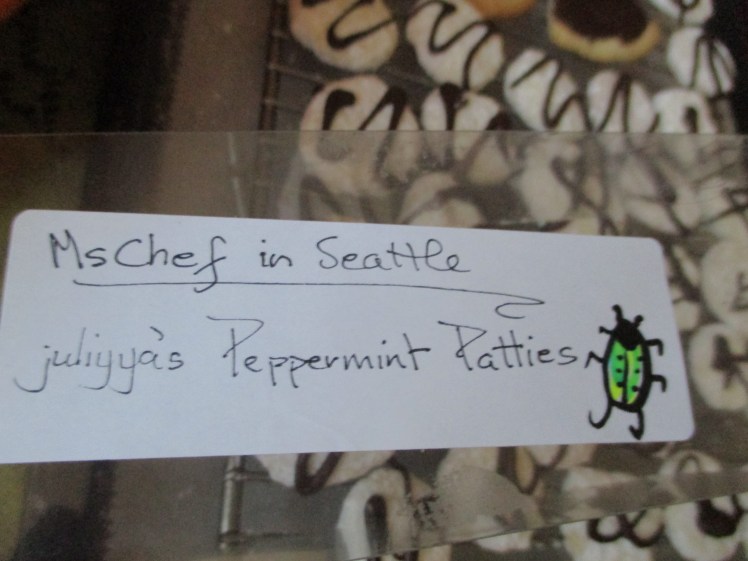 MsChef in Seattle
juliyya's Peppermint Patties